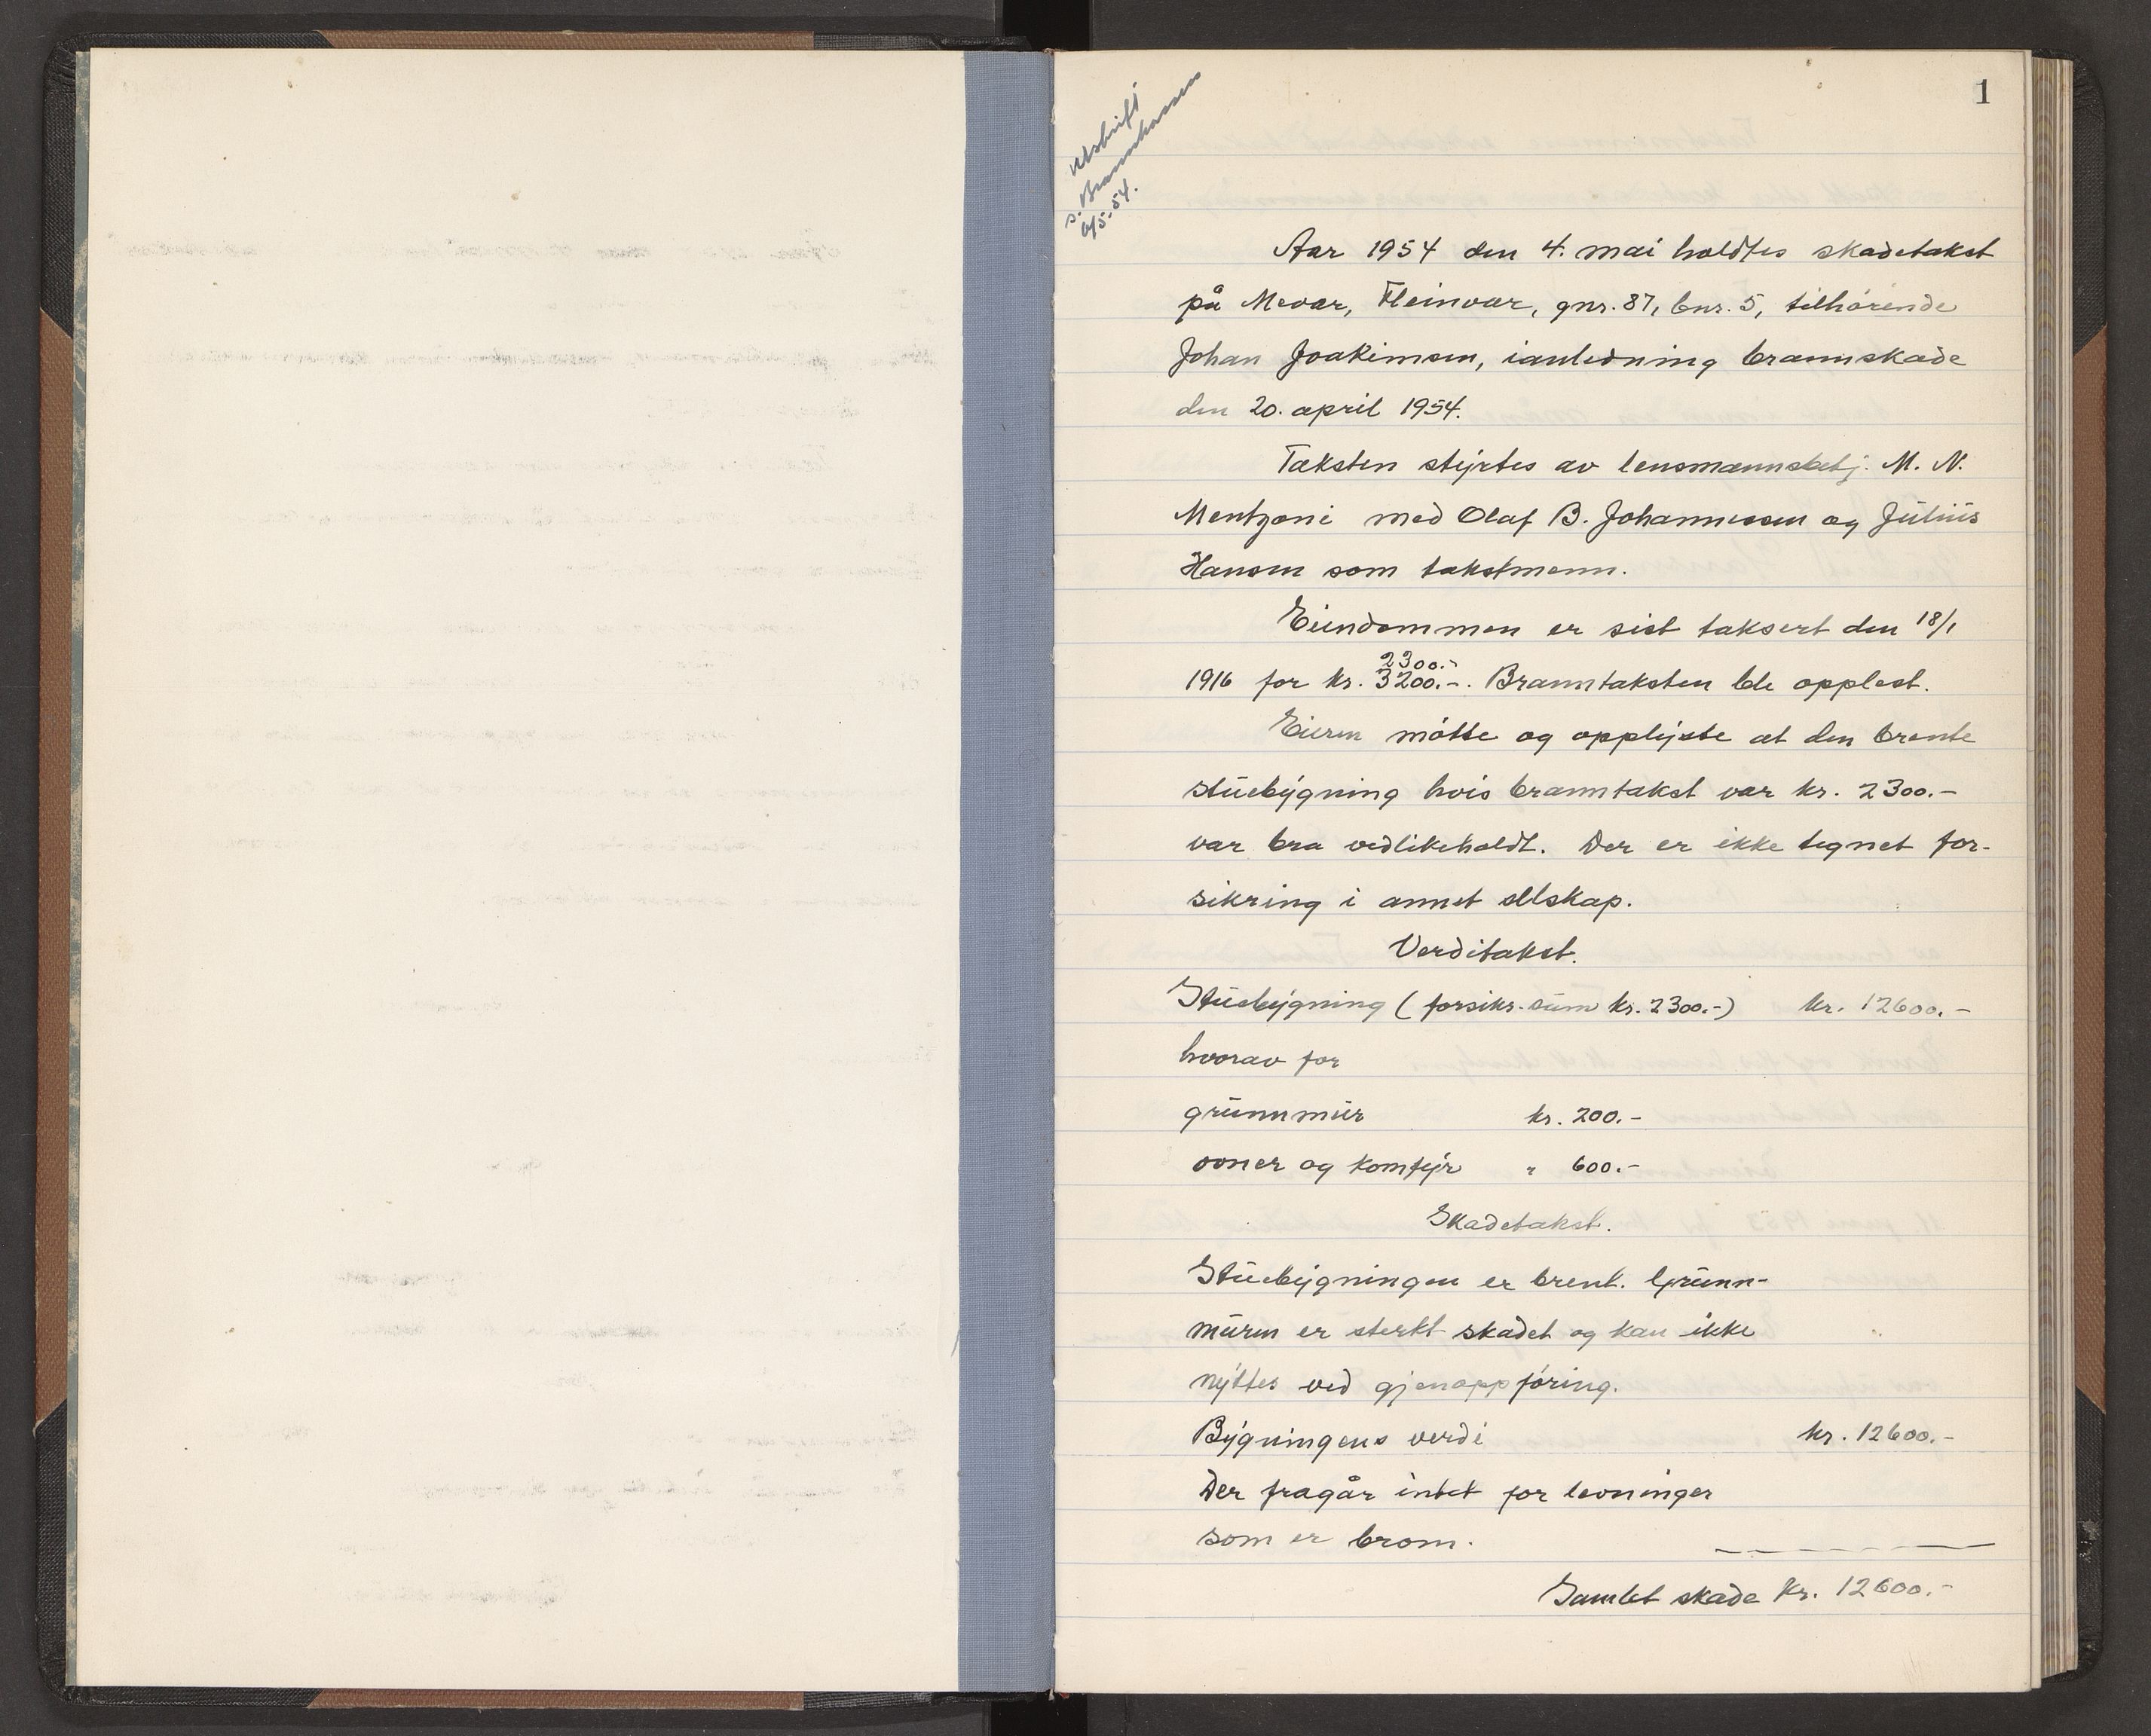 1
Utskrift
s. Brannkassen
6/5.54.
Aar 1954 den 4. mai holdtes skadetakst
på Mevær, Fleinvær, gnr. 87, bnr. 5, tilhørende
Johan Joakimsen, ianledning brannskade
den 20. april 1954.
Taksten styrtes av lensmannsbetj. M. N.
Mentzoni med Olaf B. Johannessen og Julius
Hansen som takstmenn.
Eiendommen er sist taksert den 18/1
2300.-
1916 for kr. 3200.-. Branntaksten ble opplest.
Eieren møtte og opplyste at den brente
stuebygning hvis branntakst var kr. 2300.-
var bra vedlikeholdt. Der er ikke tegnet for-
sikring i annet selskap.
Verditakst.
Stuebygning (forsikr.sum kr. 2300.-) kr. 12600.-
hvorav for
grunnmur kr. 200.-
ovner og komfyr " 600.-
Skadetakst.
Stuebygningen er brent. Grunn-
muren er sterkt skadet og kan ikke
nyttes ved gjenoppføring.
Bygningens verdi kr. 12600.-
Der fragår intet for levninger
som er brom.
Samlet skade kr. 12600.-